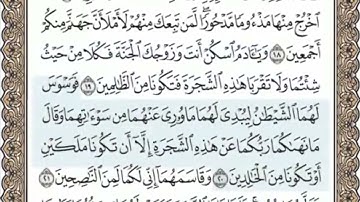 ٱخۡرُجۡ مِنۡهَا مَذۡءُومٗا مَّدۡحُورٗاۖ لَّمَن تَبِعَكَ مِنۡهُمۡ لَأَمۡلَأَنَّ جَهَنَّمَ مِنكُمۡ
أَجۡمَعِينَ ١٨ وَيَٰٓـَٔادَمُ ٱسۡكُنۡ أَنتَ وَزَوۡجُكَ ٱلۡجَنَّةَ فَكُلَا مِنۡ حَيۡثُ
شِئۡتُمَا وَلَا تَقۡرَبَا هَٰذِهِ ٱلشَّجَرَةَ فَتَكُونَا مِنَ ٱلظَّٰلِمِينَ ١٩ فَوَسۡوَسَ
لَهُمَا ٱلشَّيۡطَٰنُ لِيُبۡدِيَ لَهُمَا مَا وُۥرِيَ عَنۡهُمَا مِن سَوۡءَٰتِهِمَا وَقَالَ
مَا نَهَىٰكُمَا رَبُّكُمَا عَنۡ هَٰذِهِ ٱلشَّجَرَةِ إِلَّآ أَن تَكُونَا مَلَكَيۡنِ
أَوۡ تَكُونَا مِنَ ٱلۡخَٰلِدِينَ ٢٠ وَقَاسَمَهُمَآ إِنِّي لَكُمَا لَمِنَ ٱلنَّٰصِحِينَ ٢١